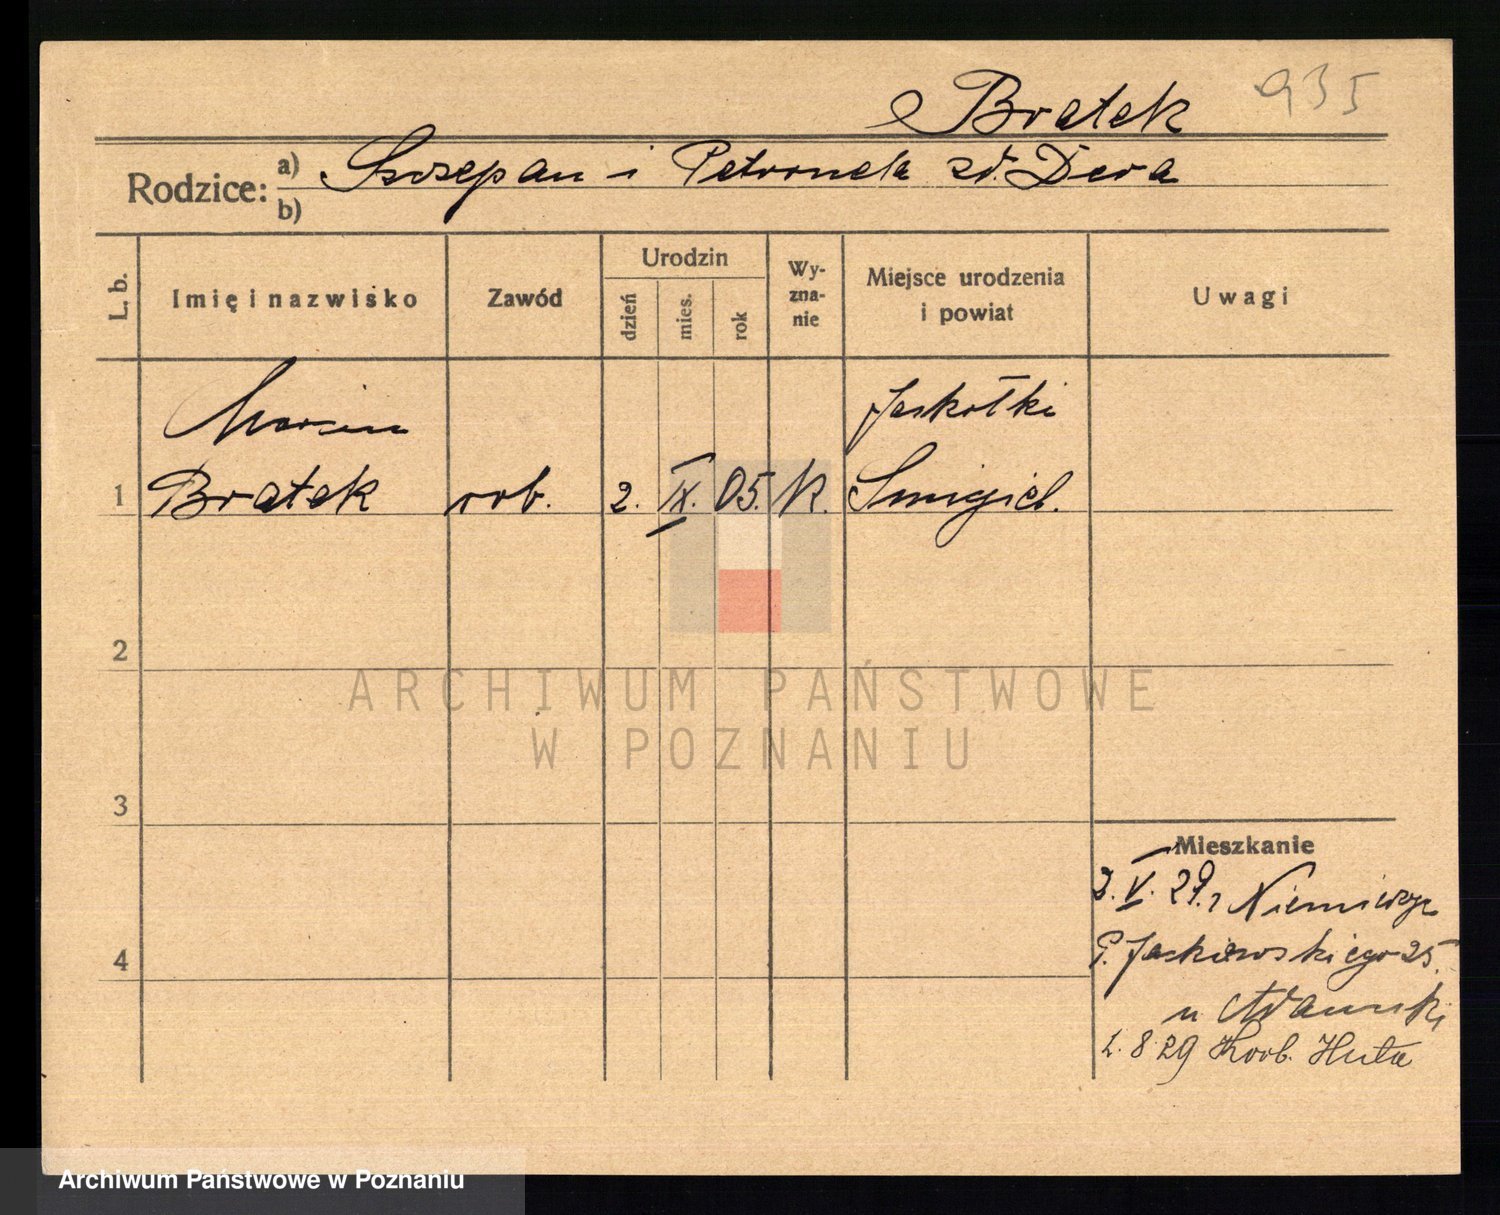 Bratek 935
Rodzice: a) Szczepan i Petronela zd. Dera
b)
L. b. Imię i nazwisko Zawód Urodzin dzień mies. rok Wyznanie Miejsce urodzenia i powiat Uwagi
Marcin Jaskółki
1 Bratek rob. 2. IX. 05. K. Smigiel.
2
ARCHIWUM PAŃSTWOWE
W POZNANIU
3
Mieszkanie
2. V. 29.
4 P. 25.
u Adamski
2. 8 29 Huta
Archiwum Państwowe w Poznaniu